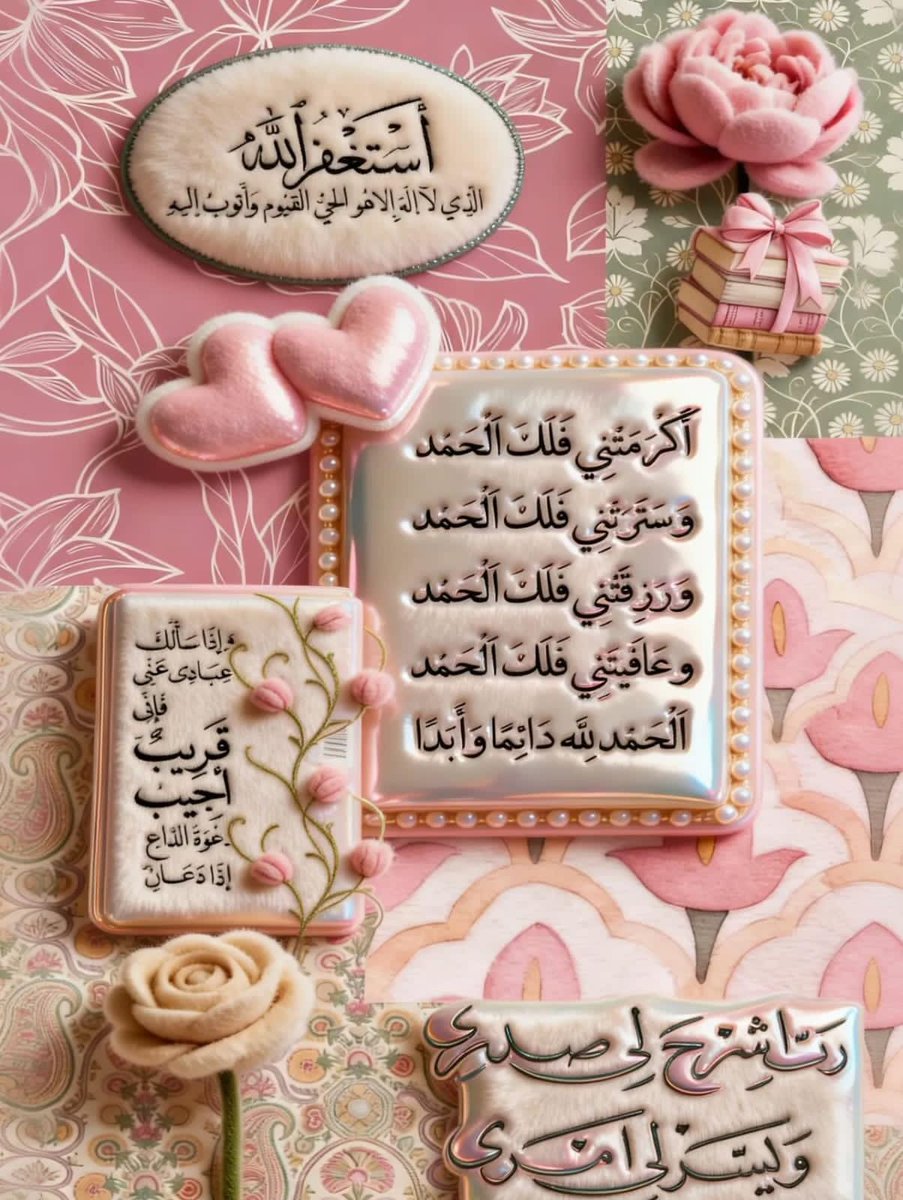 أَسْتَغْفِرُ ٱللَّهَ
الَّذِي لَا إِلَهَ إِلَّا هُوَ الْحَيُّ الْقَيُّومُ وَأَتُوبُ إِلَيْهِ
أَكْرَمْتَنِي فَلَكَ الْحَمْد
وَسَتَرْتَنِي فَلَكَ الْحَمْد
وَرَزَقْتَنِي فَلَكَ الْحَمْد
وعَافَيْتَنِي فَلَكَ الْحَمْد
الْحَمْد لِلَّه دَائِمًا وَأَبَدًا
وَإِذَا سَأَلَكَ
عِبَادِى عَنِّى
فَإِنِّى
قَرِيبٌ
أُجِيبُ
دَعْوَةَ الدَّاعِ
إِذَا دَعَانِ
رَبِّ اشْرَحْ لِي صَدْرِي
وَيَسِّرْ لِي أَمْرِي